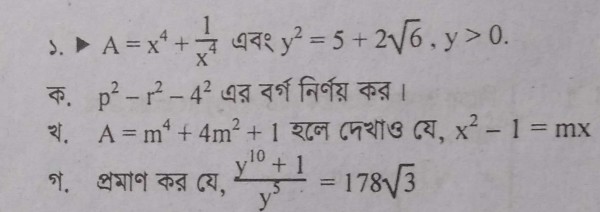 ১. ▶ A = x⁴ + 1/x⁴ এবং y² = 5 + 2√6 , y > 0.
ক. p² – r² – 4² এর বর্গ নির্ণয় কর।
খ. A = m⁴ + 4m² + 1 হলে দেখাও যে, x² – 1 = mx
গ. প্রমাণ কর যে, (y¹⁰ + 1)/y⁵ = 178√3